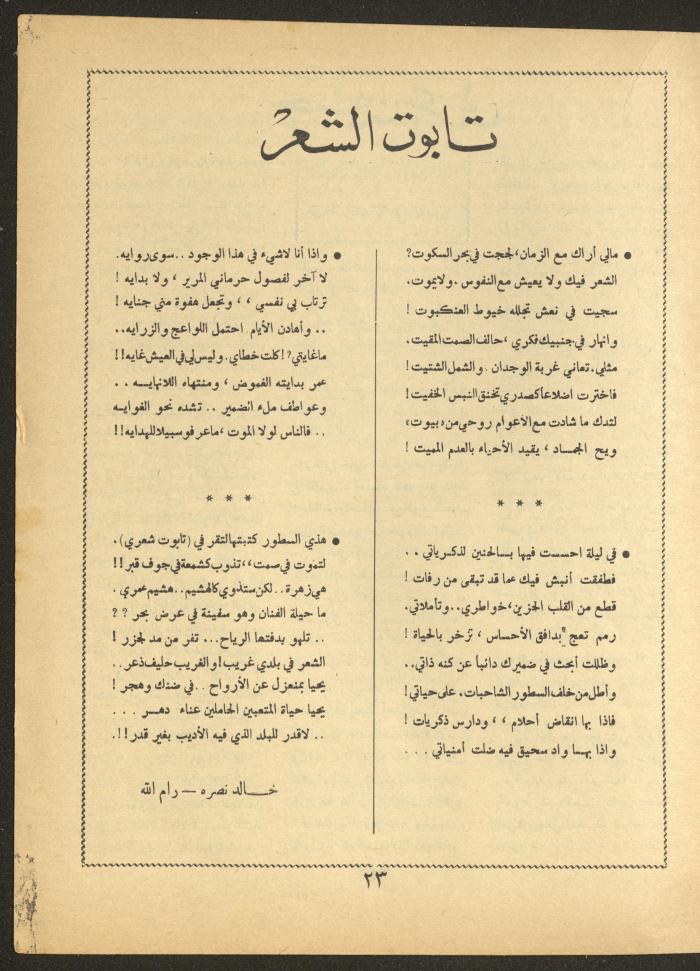 تابوت الشعر
● مالي أراك مع الزمان، لججت في بحر السكوت؟
الشعر فيك ولا يعيش مع النفوس. ولايموت.
سجيت في نعش تجلله خيوط العنكبوت !
وانهار في جنبيك فكري، حالف الصمت المقيت.
مثلي. تعاني غربة الوجدان. والشمل الشتيت!
فاخترت اضلاعا كصدري تخنق النبس الخفيت!
لتدك ما شادت مع الأعوام روحي من، بيوت،
ويح الجمـاد، يقيد الأحياء بالعدم المميت !
* * *
● في ليلة احسست فيها بالحنين لذكرياتي . .
فطفقت أنبش فيك عما قد تبقى من رفات !
قطع من القلب الحزين، خواطري.. وتأملاتي.
رمم تعج بدافق الأحساس، تزخر بالحياة !
وظللت أبحث في ضميرك دائباً عن كنه ذاتي..
وأطل من خلف السطور الشاحبات. على حياتي!
فاذا بها انقاض أحلام ،، ودارس ذكريات !
واذا بهـا واد سحيق فيه ضلت أمنياتي . . .
● واذا أنا لاشيء في هذا الوجود .. سوى روايه.
لا آخر لفصول حرماني المرير، ولا بدايه !
ترتاب بي نفسي ،، وتجعل هفوة مني جنايه !
.. وأهادن الأيام احتمل اللواعج والزرايه..
ماغايتي؟! كلت خطاي. وليس لي في العيش غايه!!
عمر بدايته الغموض، ومنتهاه اللانهايـه . .
وعواطف ملء الضمير .. تشده نحو الغوايه
.. فالناس لولا الموت، ماعرفوا سبيلا للهدايه!!
* * *
● هذي السطور كتبتها لتقر في (تابوت شعري).
لتموت في صمت،، تذوب كشمعة في جوف قبر!!
هي زهرة.. لكن ستذوي كالهشيم.. هشيم عمري.
ما حيلة الفنان وهو سفينة في عرض بحر ؟؟
.. تلهو بدفتها الرياح... تفر من مد لجزر !
الشعر في بلدي غريب! والغريب حليف ذعر..
يحيا بمنعزل عن الأرواح .. في ضنك وهجر !
يحيا حياة المتعبين الحاملين عناء دهـر . . .
.. لاقدر للبلد الذي فيه الأديب بغير قدر!!.
خـالد نصره – رام الله
٢٣